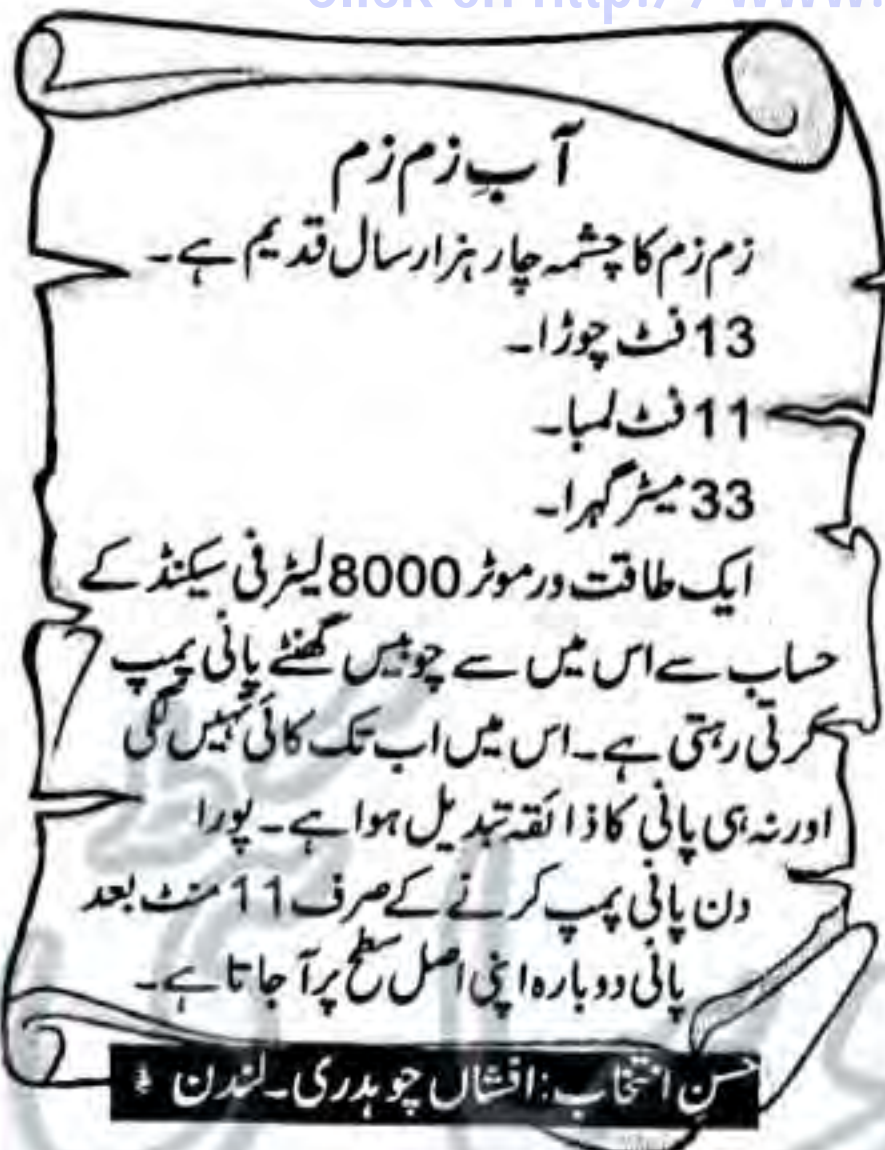 Click on http://www.
آبِ زم زم
زم زم کا چشمہ چار ہزار سال قدیم ہے۔
13 فٹ چوڑا۔
11 فٹ لمبا۔
33 میٹر گہرا۔
ایک طاقت ور موٹر 8000 لیٹر فی سیکنڈ کے
حساب سے اس میں سے چوبیس گھنٹے پانی پمپ
کرتی رہتی ہے۔ اس میں اب تک کائی نہیں لگی
اور نہ ہی پانی کا ذائقہ تبدیل ہوا ہے۔ پورا
دن پانی پمپ کرنے کے صرف 11 منٹ بعد
پانی دوبارہ اپنی اصل سطح پر آ جاتا ہے۔
حسن انتخاب: افشاں چوہدری۔ لندن